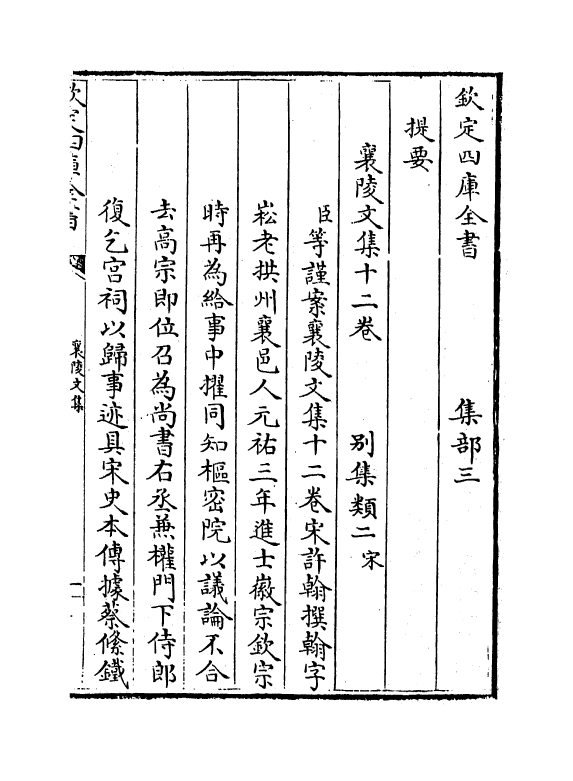 欽定四庫全書　集部三
提要
襄陵文集十二卷　別集類二宋
臣等謹案襄陵文集十二卷宋許翰撰翰字
崧老拱州襄邑人元祐三年進士徽宗欽宗
時再為給事中擢同知樞密院以議論不合
去高宗即位召為尚書右丞兼權門下侍郎
復乞宮祠以歸事迹具宋史本傳據蔡絛鐵
欽定四庫全書
襄陵文集
一